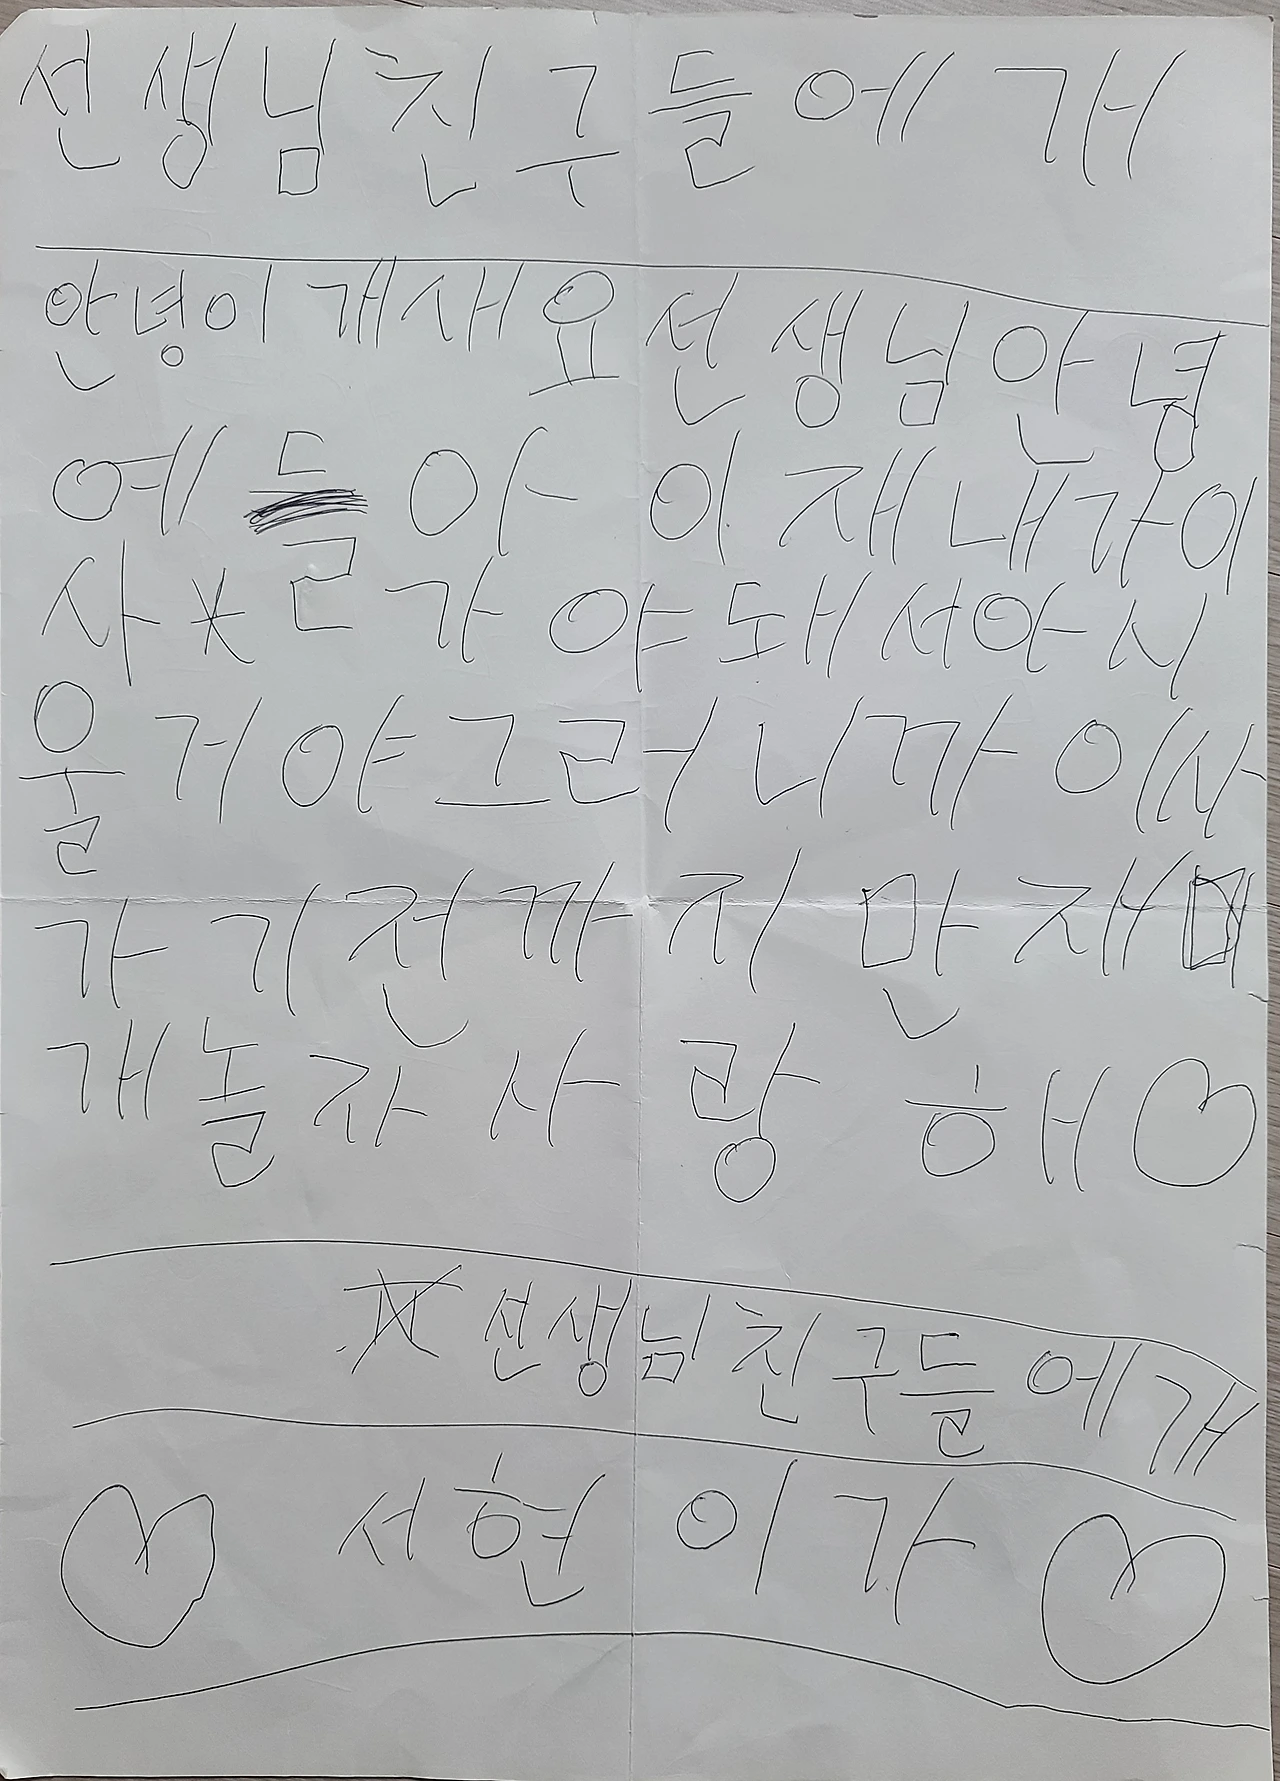 선생님친구들에개
안녕이개새요선생님안녕
에들아이재내가이
사를가야돼서아시
울거야그러니까이사
가기전까지만재미
개놀자사랑해♡
선생님친구들에개
♡ 서현이가 ♡